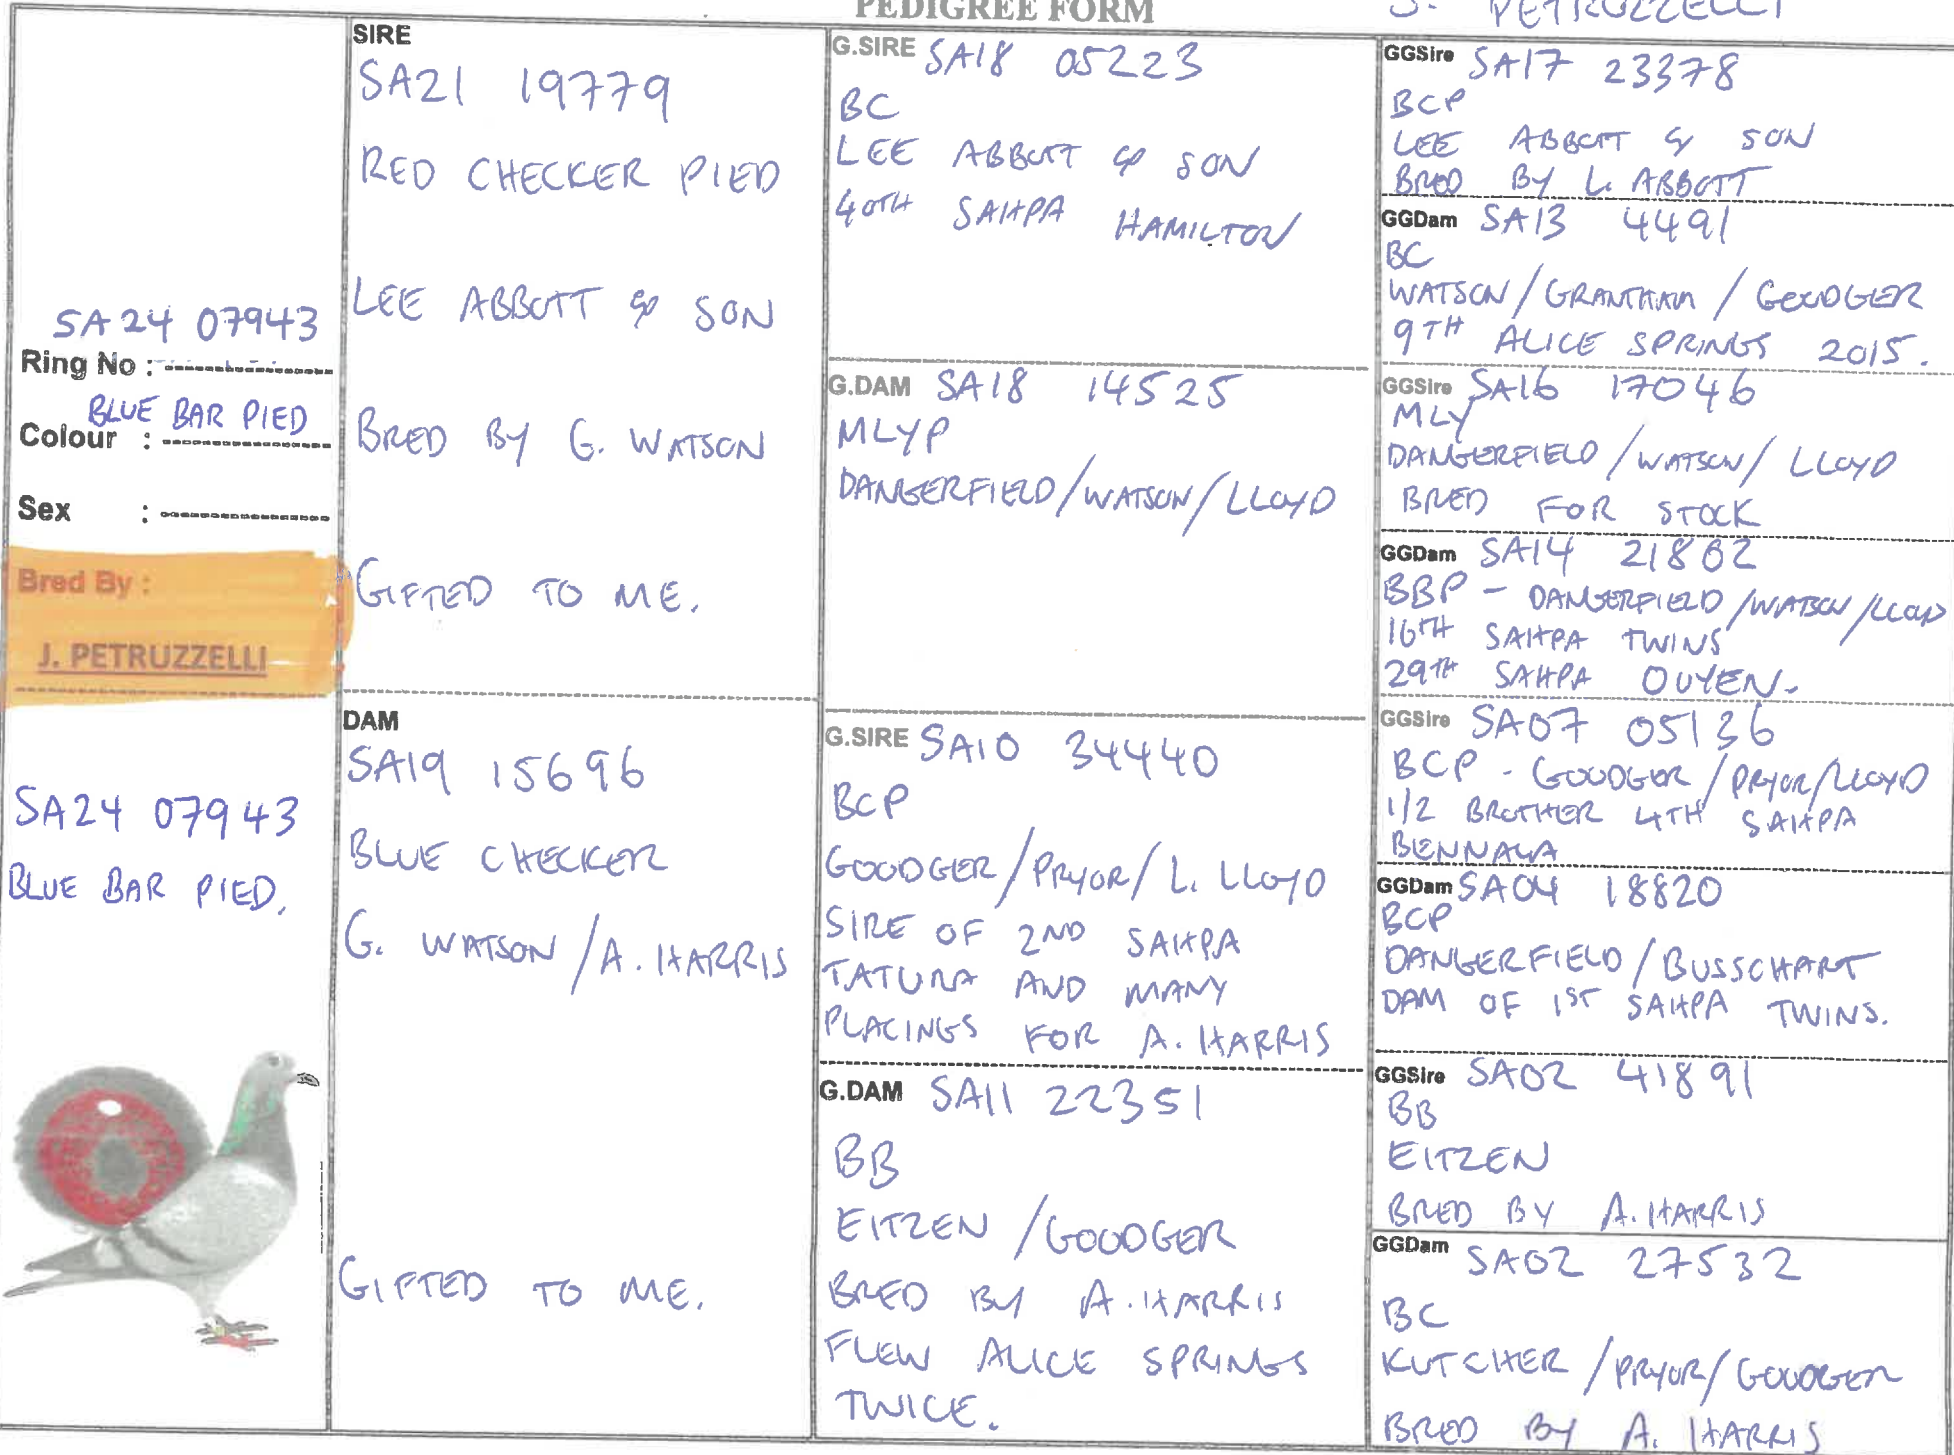 PEDIGREE FORM
J. PETRUZZELLI
SA24 07943
Ring No :
BLUE BAR PIED
Colour :
Sex :
Bred By :
J. PETRUZZELLI
SA24 07943
BLUE BAR PIED.
SIRE
SA21 19779
RED CHECKER PIED
LEE ABBOTT & SON
BRED BY G. WATSON
GIFTED TO ME.
DAM
SA19 15696
BLUE CHECKER
G. WATSON / A. HARRIS
GIFTED TO ME.
G.SIRE SA18 05223
BC
LEE ABBOTT & SON
40TH SAHPA HAMILTON
G.DAM SA18 14525
MLYP
DANGERFIELD/WATSON/LLOYD
G.SIRE SA10 34440
BCP
GOODGER/PRYOR/L. LLOYD
SIRE OF 2ND SAHPA
TATURA AND MANY
PLACINGS FOR A. HARRIS
G.DAM SA11 22351
BB
EITZEN /GOODGER
BRED BY A. HARRIS
FLEW ALICE SPRINGS
TWICE.
GGSire SA17 23378
BCP
LEE ABBOTT & SON
BRED BY L. ABBOTT
GGDam SA13 4491
BC
WATSON/GRANTHAM/GOODGER
9TH ALICE SPRINGS 2015.
GGSire SA16 17046
MLY
DANGERFIELD/WATSON/LLOYD
BRED FOR STOCK
GGDam SA14 21802
BBP - DANGERFIELD/WATSON/LLOYD
16TH SAHPA TWINS
29TH SAHPA OUYEN.
GGSire SA07 05136
BCP - GOODGER/PRYOR/LLOYD
1/2 BROTHER 4TH SAHPA
BENNALA
GGDam SA04 18820
BCP
DANGERFIELD/BUSSCHART
DAM OF 1ST SAHPA TWINS.
GGSire SA02 41891
BB
EITZEN
BRED BY A. HARRIS
GGDam SA02 27532
BC
KUTCHER/PRYOR/GOODGER
BRED BY A. HARRIS